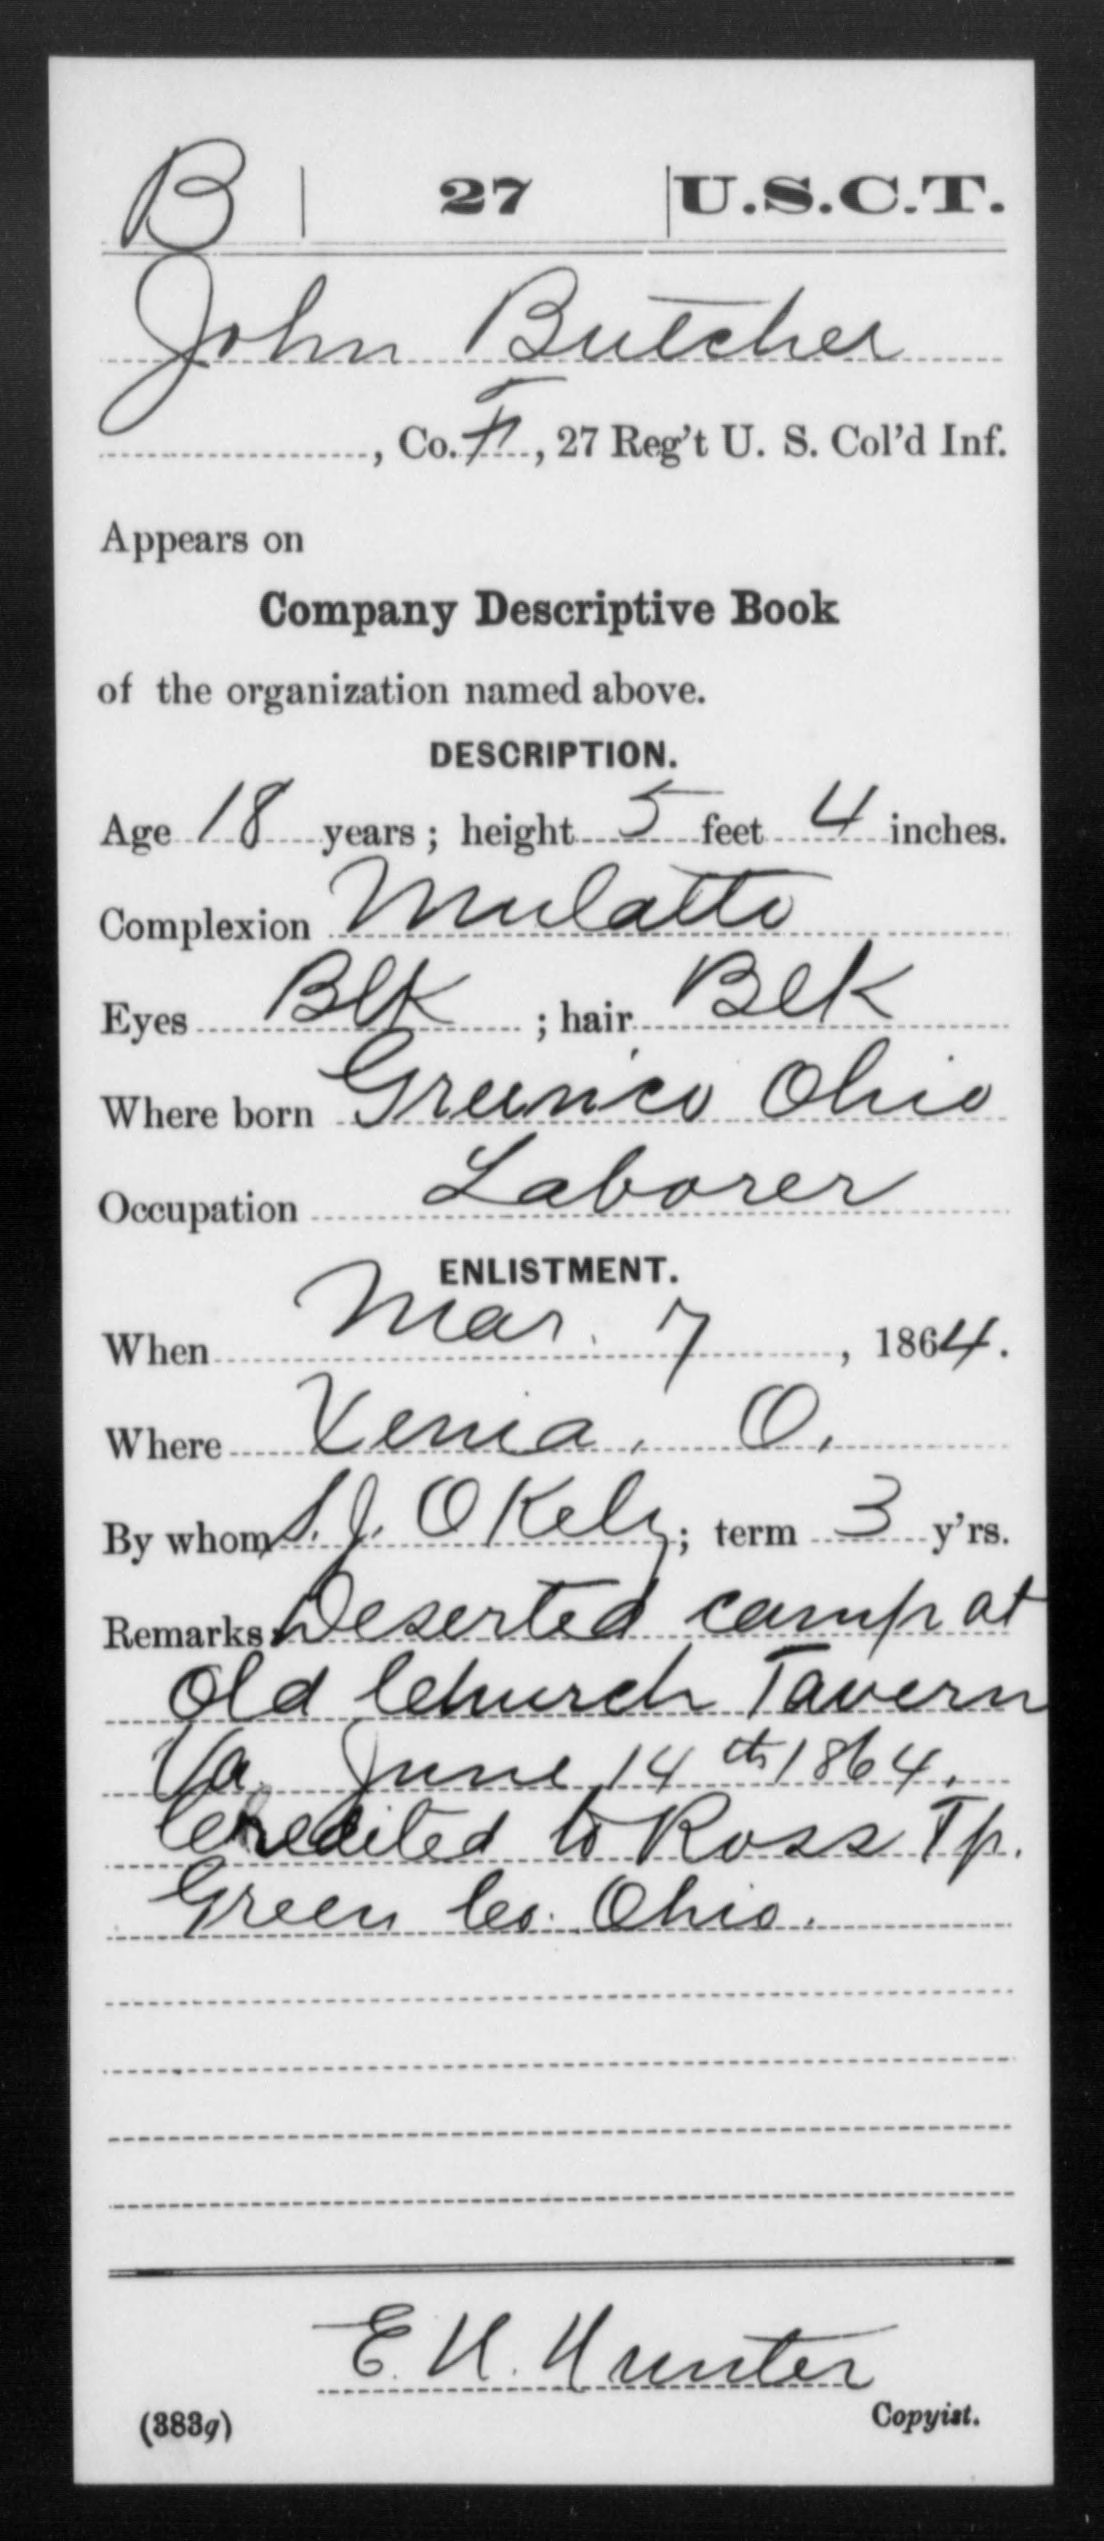 B | 27 | U.S.C.T.
John Butcher
, Co. F, 27 Reg't U. S. Col'd Inf.
Appears on
Company Descriptive Book
of the organization named above.
DESCRIPTION.
Age 18 years; height 5 feet 4 inches.
Complexion Mulatto
Eyes Blk ; hair Blk
Where born Greenco Ohio
Occupation Laborer
ENLISTMENT.
When Mar. 7, 1864.
Where Xenia. O.
By whom S. J. OKely; term 3 y'rs.
Remarks: Deserted camp at
Old Church Tavern
Va. June 14th 1864.
Credited to Ross Tp.
Green Co. Ohio.
E. H. Hunter
(383g) Copyist.